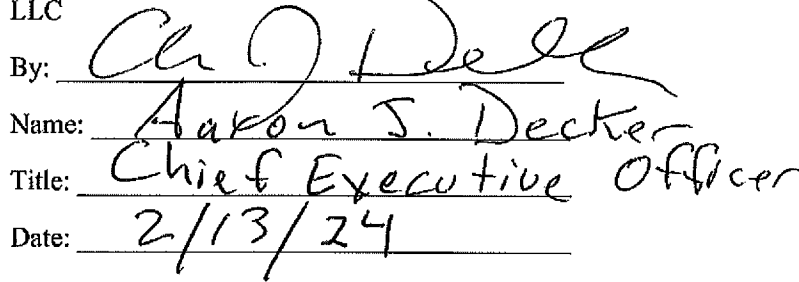 LLC
By:
Name: Aaron J. Decker
Title: Chief Executive Officer
Date: 2/13/24